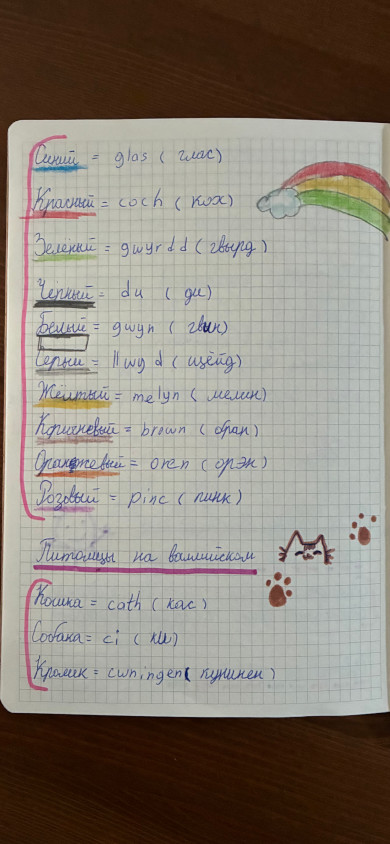 Синий = glas (глас)
Красный = coch (кох)
Зеленый = gwyrdd (гвырд)
Черный = du (ди)
Белый = gwyn (гвин)
Серый = llwyd (щёйд)
Жёлтый = melyn (мелин)
Коричневый = brown (бран)
Оранжевый = oren (орэн)
Розовый = pinc (пинк)
Питомцы на валлийском
Кошка = cath (кас)
Собака = ci (ки)
Кролик = cwningen (кунинен)